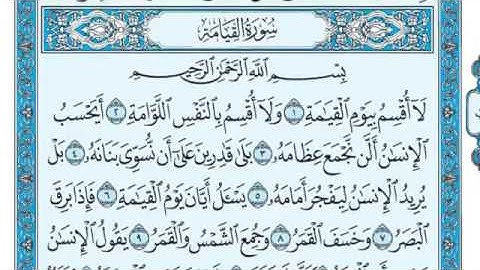 سُورَةُ القِيَامَةِ
بِسْمِ اللَّهِ الرَّحْمَٰنِ الرَّحِيمِ
لَآ أُقْسِمُ بِيَوْمِ ٱلْقِيَٰمَةِ ١ وَلَآ أُقْسِمُ بِٱلنَّفْسِ ٱللَّوَّامَةِ ٢ أَيَحْسَبُ
ٱلْإِنسَٰنُ أَلَّن نَّجْمَعَ عِظَامَهُۥ ٣ بَلَىٰ قَٰدِرِينَ عَلَىٰٓ أَن نُّسَوِّىَ بَنَانَهُۥ ٤ بَلْ
يُرِيدُ ٱلْإِنسَٰنُ لِيَفْجُرَ أَمَامَهُۥ ٥ يَسْـَٔلُ أَيَّانَ يَوْمُ ٱلْقِيَٰمَةِ ٦ فَإِذَا بَرِقَ
ٱلْبَصَرُ ٧ وَخَسَفَ ٱلْقَمَرُ ٨ وَجُمِعَ ٱلشَّمْسُ وَٱلْقَمَرُ ٩ يَقُولُ ٱلْإِنسَٰنُ